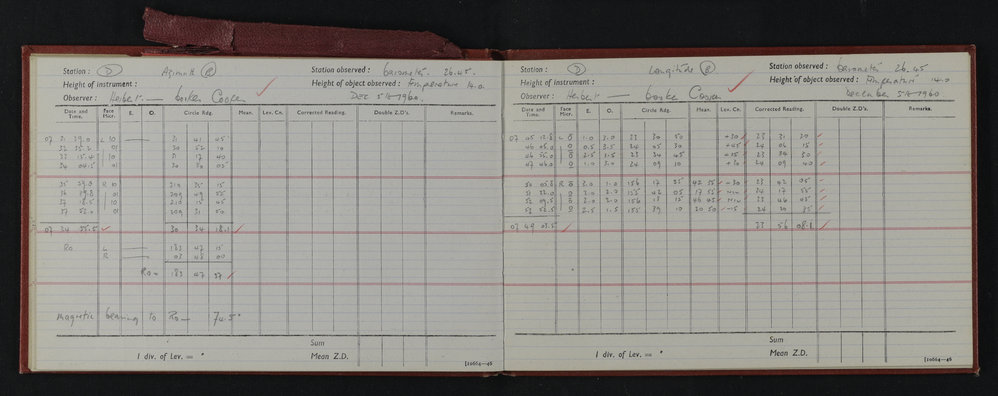 Station : D Azimuth B Station observed : barometer. 26.45
Height of instrument : Height of object observed : Temperature 14.0
Observer : Herbert — Cooper Dec 5th 1960.
Date and Time. Face Micr. E. O. Circle Rdg. Mean. Lev. Cn. Corrected Reading. Double Z.D's. Remarks.
07 31 39.0 L 10 31 41 45
32 35.2 01 30 52 10
33 15.4 10 31 17 40
34 04.5 01 30 30 05
35 39.8 R 10 210 35 15
36 01 209 49 55
37 18.5 10 210 15 45
37 52.0 01 209 31 50
07 34 55.5 30 34 18.1
Ro L — 183 47 15
R — 03 48 00
Ro = 183 47 37
magnetic bearing to Ro — 74.5°
Sum
1 div. of Lev. = " Mean Z.D. [20664—46
Station : D Longitude B Station observed : barometer 26.45
Height of instrument : Height of object observed : Temperature 14.0
Observer : Herbert — Cooper December 5th 1960
Date and Time. Face Micr. E. O. Circle Rdg. Mean. Lev. Cn. Corrected Reading. Double Z.D's. Remarks.
07 05 12.8 L 1.0 3.0 23 30 50 +30 23 31 20
46 05.0 0.5 3.5 24 05 30 +45 24 06 15
46 55.0 2.5 1.5 23 34 45 23 34 30
47 46.0 1.0 3.0 24 09 10 +30 24 09 40
50 05.8 R 3.0 1.0 156 17 25 42 35 -30 23 42 05
51 2.0 2.0 155 42 05 17 55 NIL 24 17 55
52 09.5 2.0 2.0 156 13 15 46 45 NIL 23 46 45
53 52.5 2.5 1.5 155 39 10 20 50 -15 24 20 35
07 49 03.5 23 56 08.1
Sum
1 div. of Lev. = " Mean Z.D. [20664—46